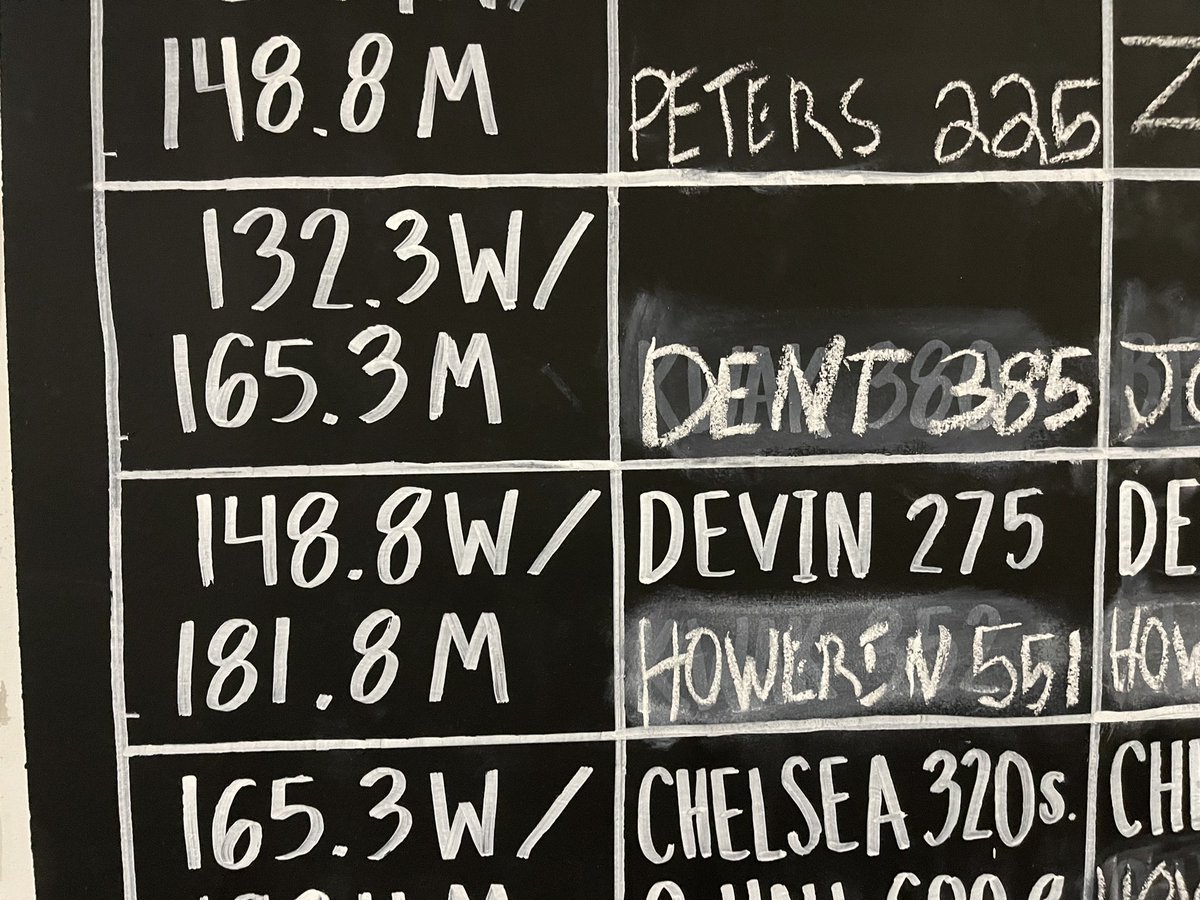 148.8 M
PETERS 225
132.3 W/
165.3 M
DENT 385
148.8 W/
181.8 M
DEVIN 275
DE
HOWEREN 551
HOW
165.3 W/
CHELSEA 320s.
CHE